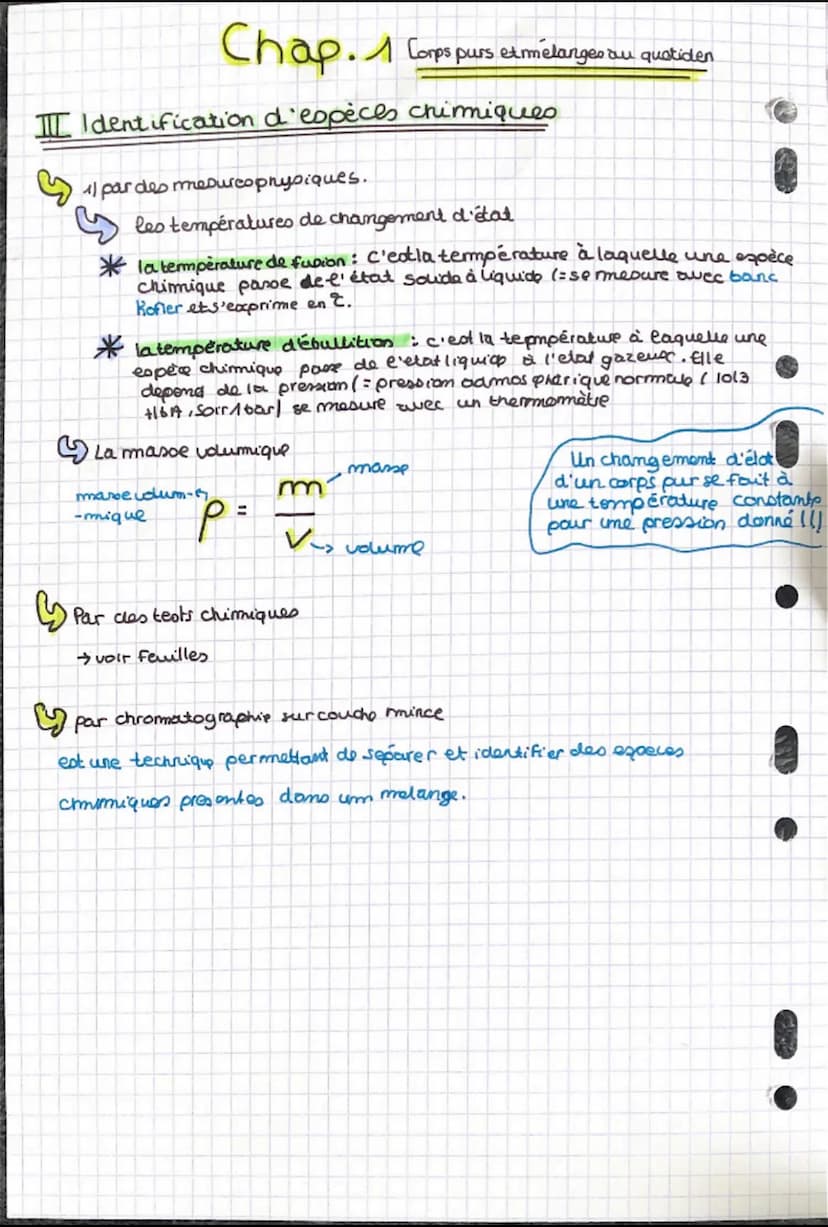 Chap. 1 Corps purs et mélanges au quotidien
III Identification d'espèces chimiques
1) par des mesures physiques.
les températures de changement d'état
* la température de fusion : c'est la température à laquelle une espèce
chimique passe de l'état solide à liquide (= se mesure avec banc
Kofler et s'exprime en °C.
* la température d'ébullition : c'est la température à laquelle une
espèce chimique passe de l'etat liquide à l'etat gazeux. Elle
depend de la pression (= pression admospharique normale ( 1013
, soit 1 bar) se mesure avec un thermomètre
La masse volumique
masse volum-
-mique
ρ = m / V
masse
volume
Un changement d'état
d'un corps pur se fait à
une température constante
pour une pression donné !!!
Par des tests chimiques
→ voir feuilles
par chromatographie sur couche mince
est une technique permettant de séparer et identifier des especes
chimiques presentes dans un melange.